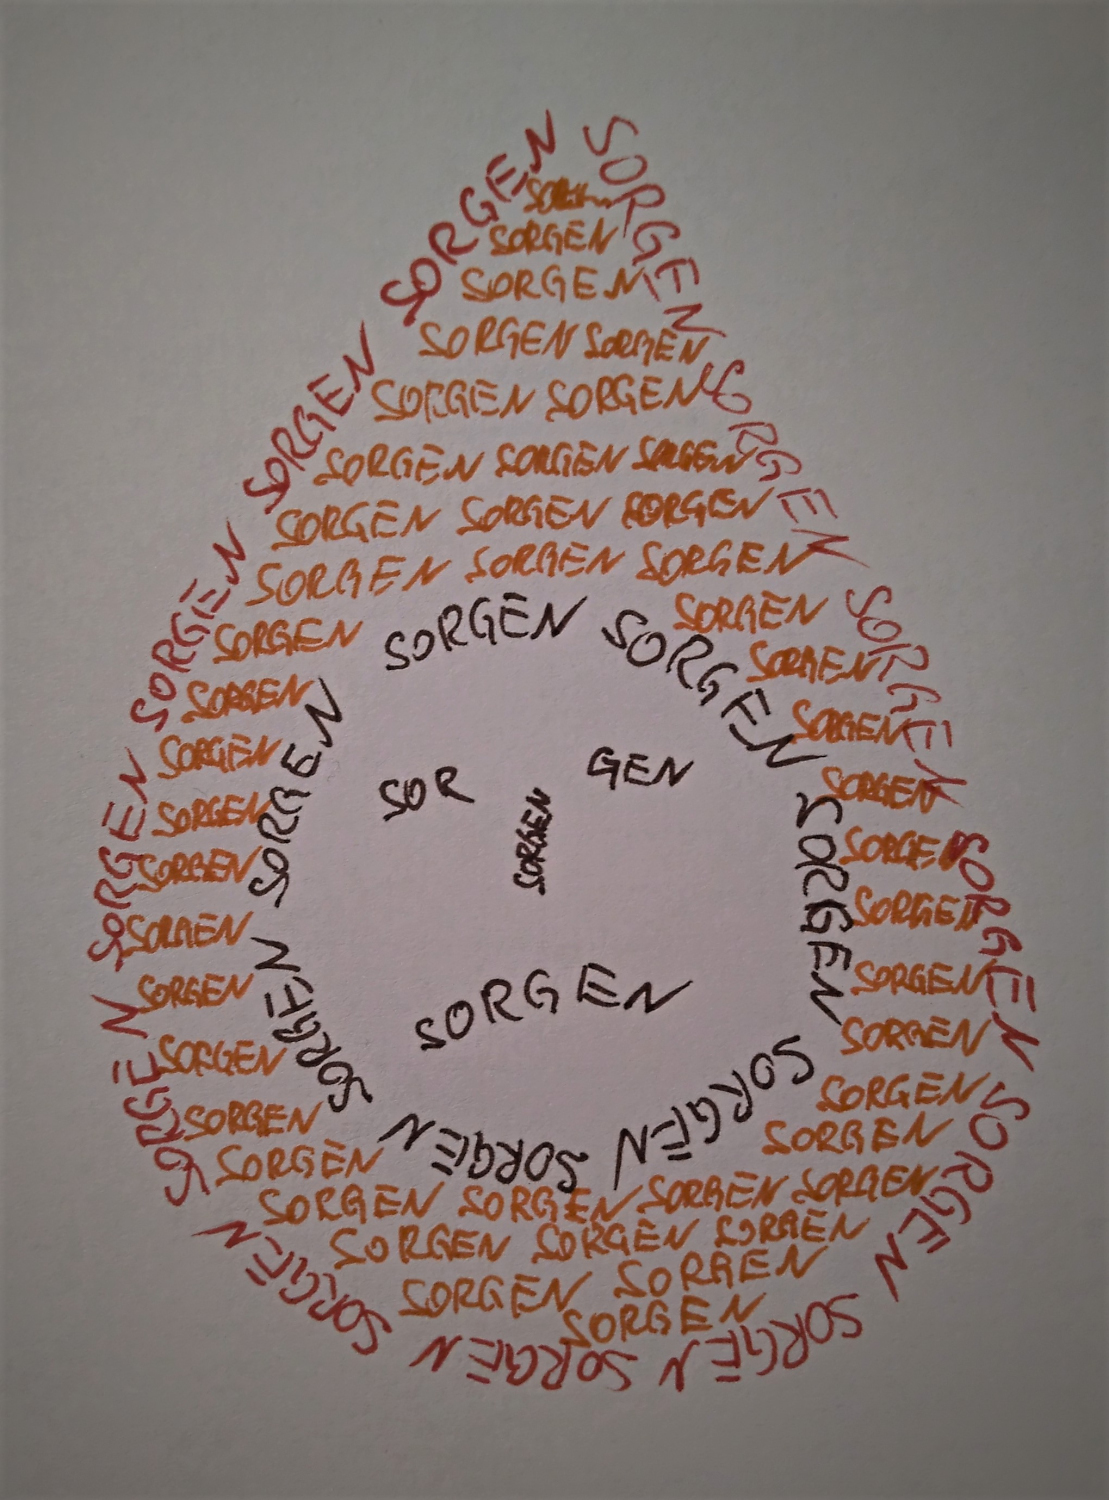 SORGEN SORGEN
SORGEN
SORGEN
SORGEN SORGEN
SORGEN SORGEN SORGEN SORGEN
SORGEN SORGEN SORGEN
SORGEN SORGEN SORGEN
SORGEN SORGEN SORGEN SORGEN
SORGEN SORGEN SORGEN SORGEN SORGEN SORGEN
SORGEN SORGEN SORGEN
SORGEN SORGEN SORGEN
SORGEN SORGEN SORGEN
SOR GEN
SORGEN
SORGEN SORGEN
SORGEN SORGEN SORGEN SORGEN
SORGEN SORGEN
SORGEN SORGEN
SORGEN
SORGEN SORGEN SORGEN
SORGEN SORGEN SORGEN SORGEN
SORGEN SORGEN SORGEN
SORGEN SORGEN SORGEN SORGEN
SORGEN SORGEN SORGEN
SORGEN SORGEN
SORGEN
SORGEN SORGEN SORGEN